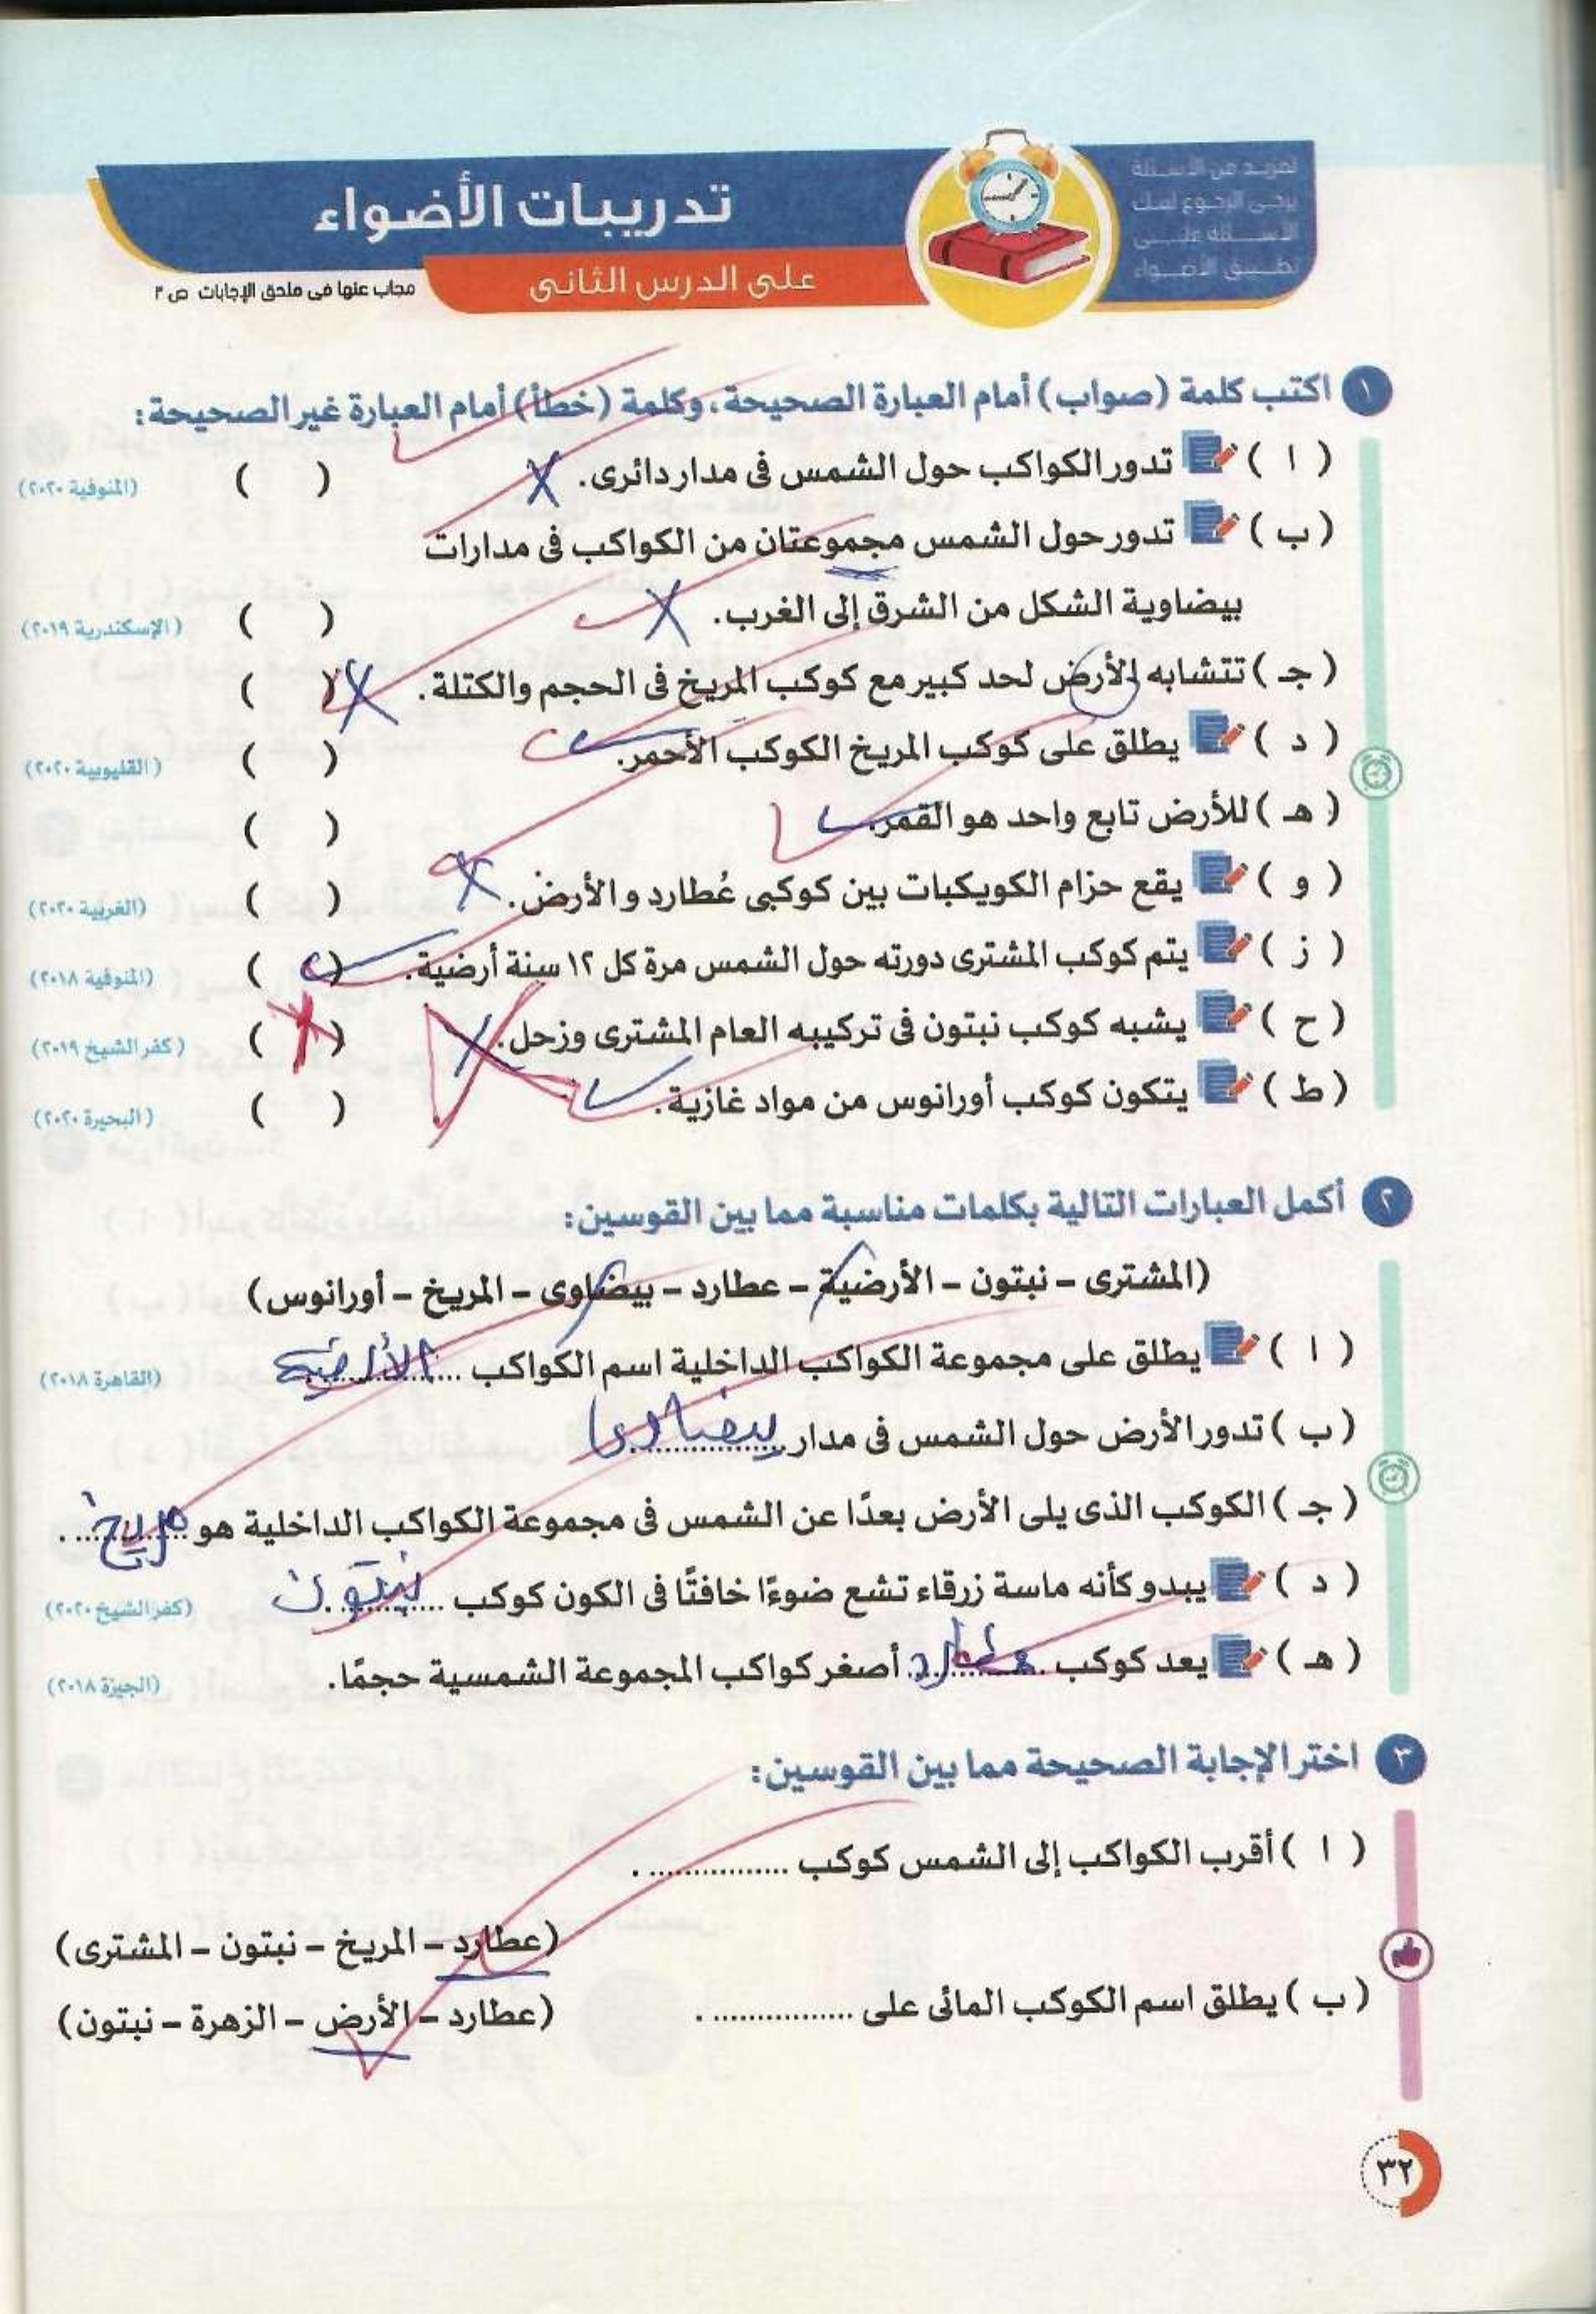 لمزيد من الأسئلة
يرجى الرجوع لبنك
الأسئلة على
تطبيق الأضواء
تدريبات الأضواء
على الدرس الثانى
مجاب عنها فى ملحق الإجابات ص ٣
١ اكتب كلمة (صواب) أمام العبارة الصحيحة، وكلمة (خطأ) أمام العبارة غير الصحيحة:
( ا ) تدور الكواكب حول الشمس فى مدار دائرى. X ( ) (المنوفية ٢٠٢٠)
( ب ) تدور حول الشمس مجموعتان من الكواكب فى مدارات
بيضاوية الشكل من الشرق إلى الغرب. X ( ) (الإسكندرية ٢٠١٩)
( جـ ) تتشابه الأرض لحد كبير مع كوكب المريخ فى الحجم والكتلة. X ( )
( د ) يطلق على كوكب المريخ الكوكب الأحمر. ✓ ( ) (القليوبية ٢٠٢٠)
( هـ ) للأرض تابع واحد هو القمر. ✓ ( )
( و ) يقع حزام الكويكبات بين كوكبى عُطارد والأرض. X ( ) (الغربية ٢٠٢٠)
( ز ) يتم كوكب المشترى دورته حول الشمس مرة كل ١٢ سنة أرضية. ✓ ( ) (المنوفية ٢٠١٨)
( ح ) يشبه كوكب نبتون فى تركيبه العام المشترى وزحل. X ( X ) (كفر الشيخ ٢٠١٩)
( ط ) يتكون كوكب أورانوس من مواد غازية. ✓ ( ) (البحيرة ٢٠٢٠)
٢ أكمل العبارات التالية بكلمات مناسبة مما بين القوسين:
(المشترى – نبتون – الأرضية – عطارد – بيضاوى – المريخ – أورانوس)
( ا ) يطلق على مجموعة الكواكب الداخلية اسم الكواكب الأرضية (القاهرة ٢٠١٨)
( ب ) تدور الأرض حول الشمس فى مدار بيضاوى
( جـ ) الكوكب الذى يلى الأرض بعدًا عن الشمس فى مجموعة الكواكب الداخلية هو مريخ .
( د ) يبدو كأنه ماسة زرقاء تشع ضوءًا خافتًا فى الكون كوكب نبتون (كفر الشيخ ٢٠٢٠)
( هـ ) يعد كوكب عطارد أصغر كواكب المجموعة الشمسية حجمًا. (الجيزة ٢٠١٨)
٣ اختر الإجابة الصحيحة مما بين القوسين:
( ا ) أقرب الكواكب إلى الشمس كوكب ................ .
(عطارد – المريخ – نبتون – المشترى)
( ب ) يطلق اسم الكوكب المائى على ................ . (عطارد – الأرض – الزهرة – نبتون)
٣٢